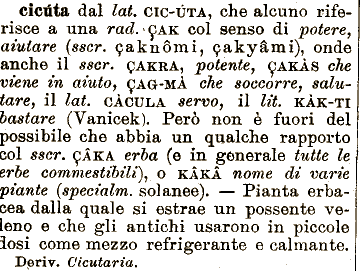 cicúta dal lat. CIC-ÚTA, che alcuno rife-
risce a una rad. ÇAK col senso di potere,
aiutare (sscr. çaknômi, çakyâmi), onde
anche il sscr. ÇAKRA, potente, ÇAKÀS che
viene in aiuto, ÇAG-MÀ che soccorre, salu-
tare, il lat. CÀCULA servo, il lit. KÀK-TI
bastare (Vanicek). Però non è fuori del
possibile che abbia un qualche rapporto
col sscr. ÇÂKA erba (e in generale tutte le
erbe commestibili), o KÂKÂ nome di varie
piante (specialm. solanee). — Pianta erba-
cea dalla quale si estrae un possente ve-
leno e che gli antichi usarono in piccole
dosi come mezzo refrigerante e calmante.
Deriv. Cicutaria.